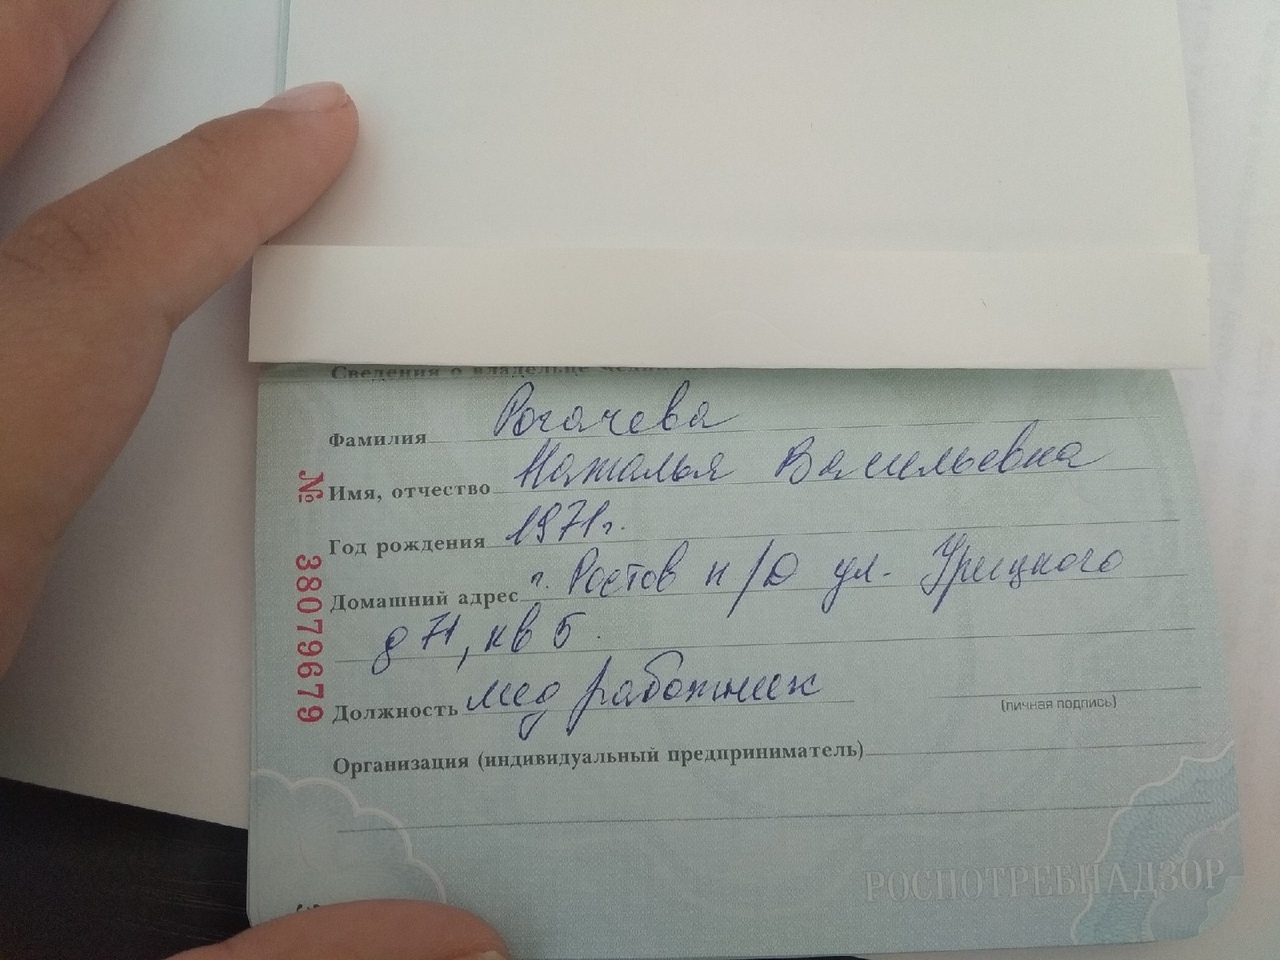 Сведения о владельце
Фамилия Рогачева
Имя, отчество Наталья Васильевна
Год рождения 1971г.
Домашний адрес г. Ростов н/Д ул. Урицкого
д 71, кв 5.
Должность мед работник
(личная подпись)
Организация (индивидуальный предприниматель)
РОСПОТРЕБНАДЗОР
№ 38079679